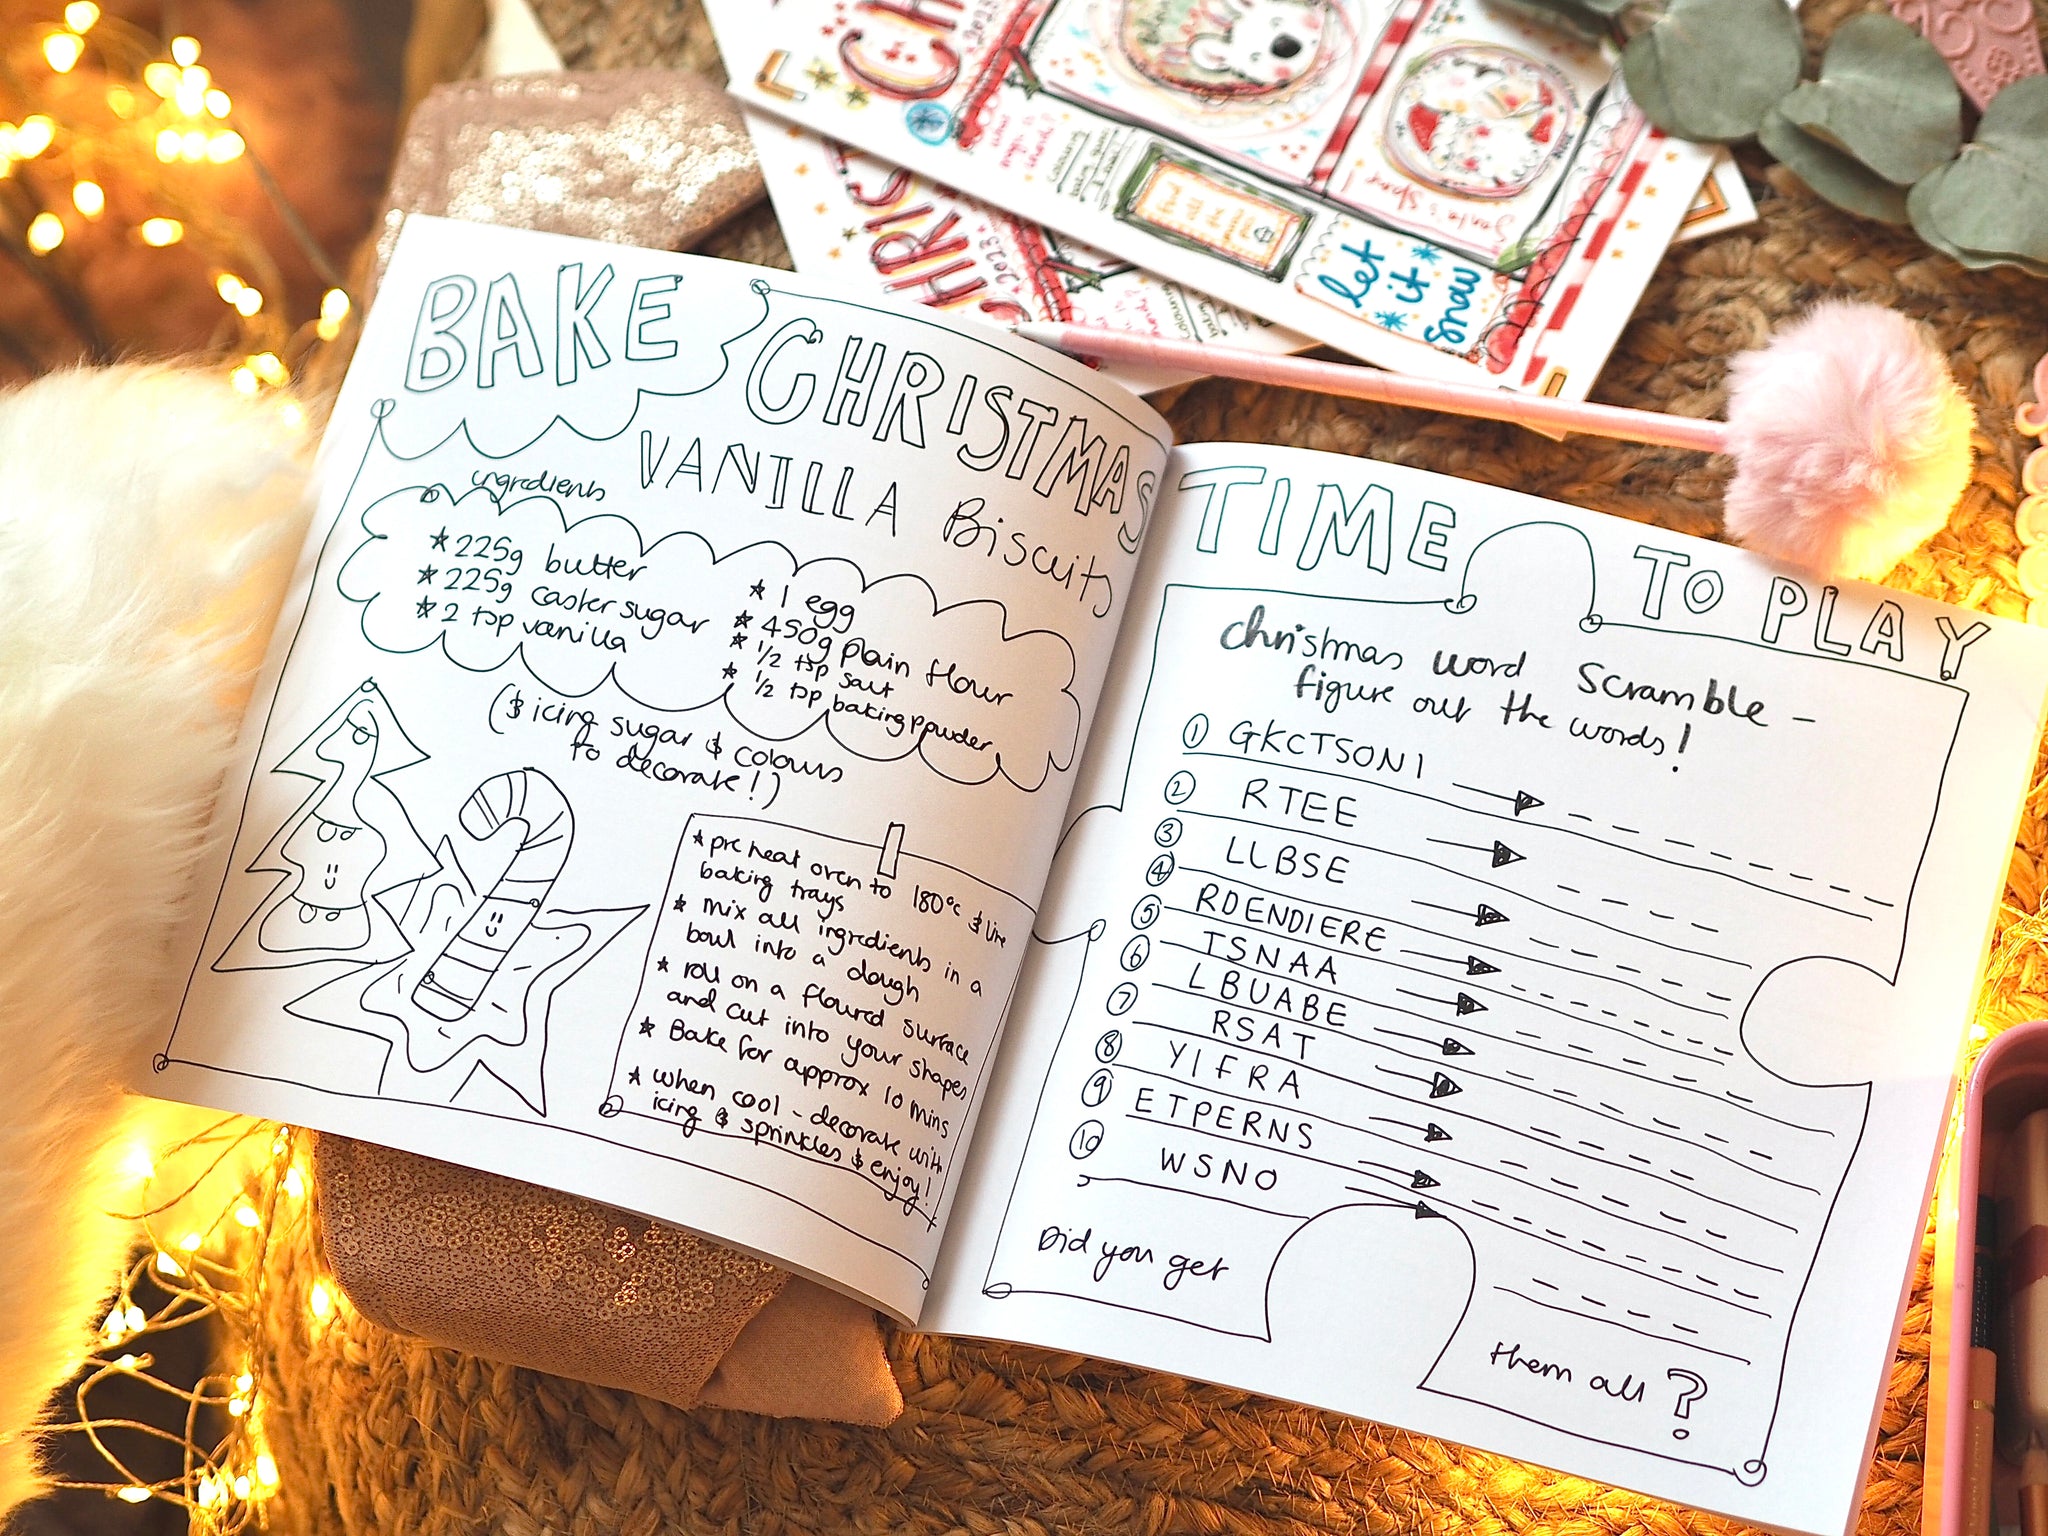 BAKE CHRISTMAS
VANILLA Biscuits
ingredients
★ 225g butter
★ 225g caster sugar
★ 2 tsp vanilla
★ 1 egg
★ 450g plain flour
★ 1/2 tsp salt
★ 1/2 tsp baking powder
(& icing sugar & colours
to decorate!)
★ pre heat oven to 180°c & line
baking trays
★ Mix all ingredients in a
bowl into a dough
★ roll on a floured surface
and cut into your shapes
★ Bake for approx 10 mins
★ when cool - decorate with
icing & sprinkles & enjoy!
TIME TO PLAY
Christmas word Scramble -
figure out the words!
① GKCTSONI
② RTEE
③ LLBSE
④ RDENDIERE
⑤ TSNAA
⑥ LBUABE
⑦ RSAT
⑧ YIFRA
⑨ ETPERNS
⑩ WSNO
Did you get
them all?
CH
2023
Santa's Stop!
let
it
snow
CHRIS
2023